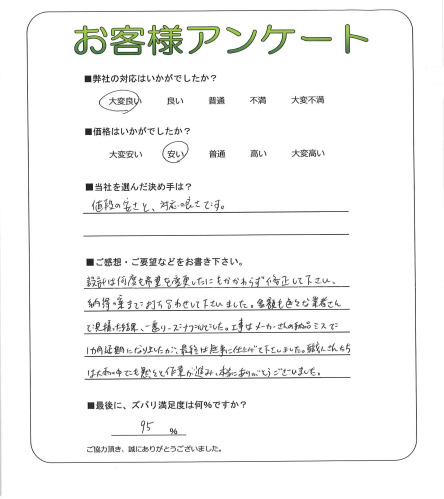 お客様アンケート
■弊社の対応はいかがでしたか?
大変良い 良い 普通 不満 大変不満
■価格はいかがでしたか?
大変安い 安い 普通 高い 大変高い
■当社を選んだ決め手は?
値段の安さと、対応の良さです。
■ご感想・ご要望などをお書き下さい。
設計は何度も希望を変更したにもかかわらず修正して下さい、
納得の来まで打ち合わせして下さいました。金額も色々な業者さん
で見積った結果、一番リーズナブルでした。工事はメーカーさんの納品ミスで
1カ月延期になりましたが、最終は無事に仕上げて下しました。職人さんたち
は大雨の中でも黙々と作業が進み、本当にありがとうございました。
■最後に、ズバリ満足度は何%ですか?
95 %
ご協力頂き、誠にありがとうございました。